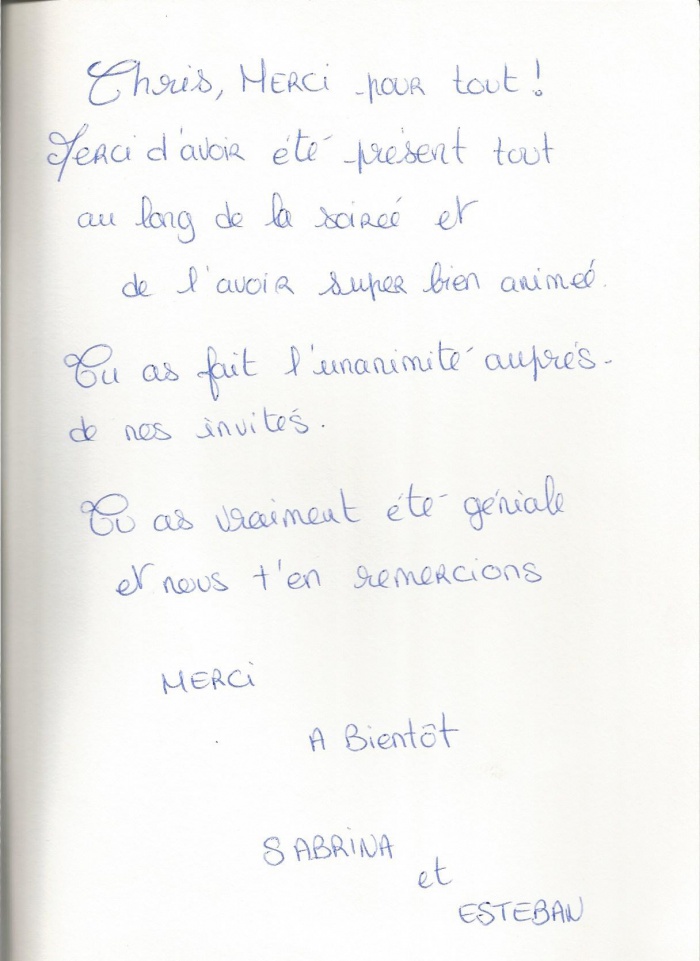 Chris, MERCi pour tout !
Merci d'avoir été présent tout
au long de la soireé et
de l'avoir super bien animeé.
Tu as fait l'unanimité auprés
de nos invités.
Tu as vraiment été géniale
et nous t'en remercions
MERCi
A Bientôt
SABRINA
et
ESTEBAN